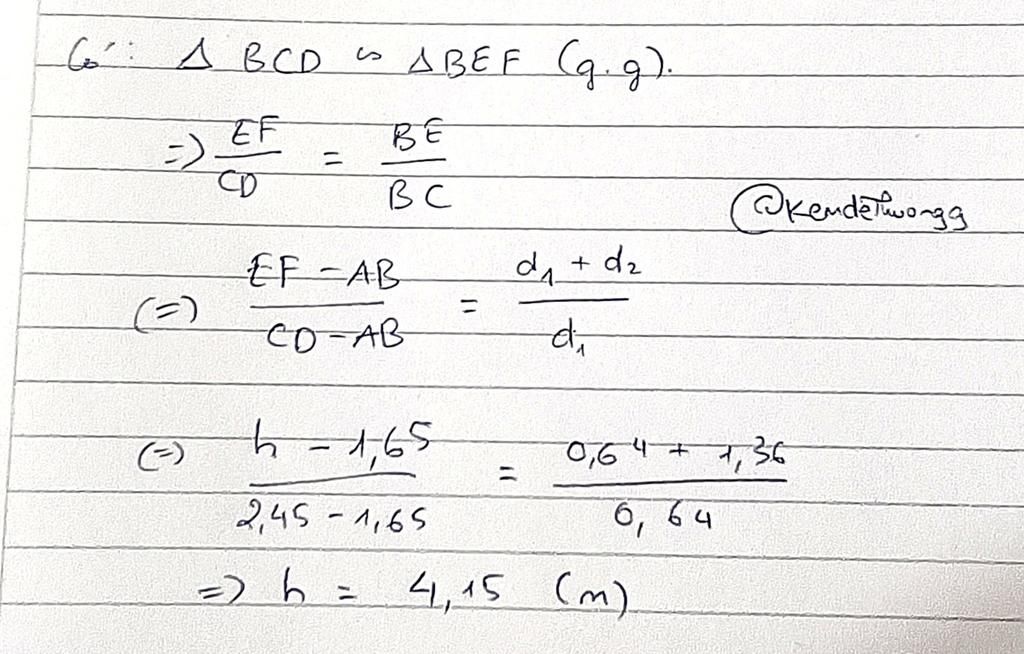 Có: Δ BCD ∽ Δ BEF (g.g).
=> EF/CD = BE/BC
@KemdeThuongg
(=) EF - AB / CD - AB = d₁ + d₂ / d₁
(=) h - 1,65 / 2,45 - 1,65 = 0,64 + 1,36 / 0,64
=> h = 4,15 (m)